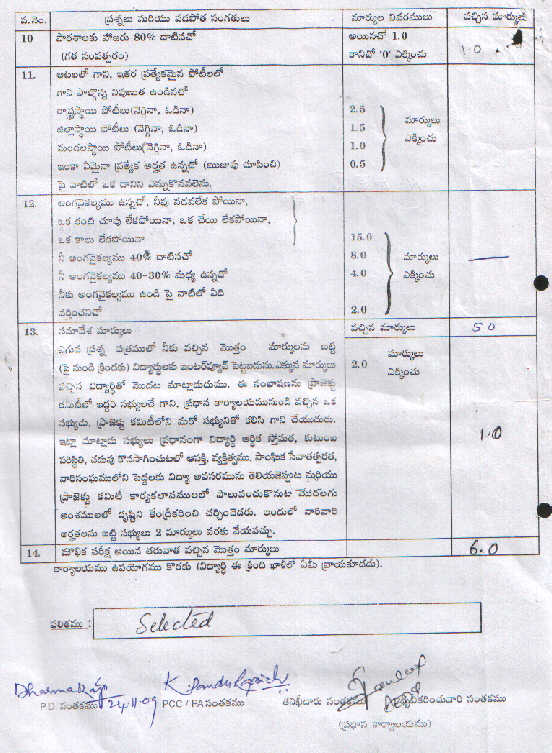 వ.నెం. ప్రశ్నలు మరియు వడపోత సంగతులు మార్కుల వివరములు వచ్చిన మార్కులు
10 పాఠశాలకు హాజరు 80% దాటినచో అయినచో 1.0 1.0
(గత సంవత్సరం) కానిచో '0' ఎక్కించు
11. ఆటలలో గాని, ఇతర ప్రత్యేకమైన పోటీలలో
గాని పాల్గొన్న నిపుణుత ఉండినచో
రాష్ట్రస్థాయి పోటీలు(నెగ్గినా, ఓడినా) 2.5 మార్కులు
జిల్లాస్థాయి పోటీలు (నెగ్గినా, ఓడినా) 1.5 ఎక్కించు
మండలస్థాయి పోటీలు(నెగ్గినా, ఓడినా) 1.0
ఇంకా ఏమైనా ప్రత్యేక అర్హత ఉన్నచో (ఋజువు చూపించి) 0.5
పై వాటిలో ఒక దానిని ఎన్నుకొనవలెను.
12. అంగవైకల్యము ఉన్నచో, నీవు నడవలేక పోయినా,
ఒక కంటి చూపు లేకపోయినా, ఒక చేయి లేకపోయినా,
ఒక కాలు లేకపోయినా 15.0
నీ అంగవైకల్యము 40% దాటినచో 8.0 మార్కులు
నీ అంగవైకల్యము 40-30% మధ్య ఉన్నచో 4.0 ఎక్కించు
నీకు అంగవైకల్యము ఉండి పై వాటిలో ఏది
వర్తించనిచో 2.0
13. సమావేశ మార్కులు వచ్చిన మార్కులు 50
ఎగువ ప్రశ్న పత్రములో నీకు వచ్చిన మొత్తం మార్కులను బట్టి మార్కులు
(పై నుండి క్రిందకు) విద్యార్థులకు ఇంటర్వ్యూ పెట్టబడును.ఎక్కువ మార్కులు 2.0 ఎక్కించు
వచ్చిన విద్యార్థితో మొదట మాట్లాడుదుము. ఈ సంభాషణను ప్రాజెక్టు
కమిటీలో ఇద్దరు సభ్యులచే గాని, ప్రధాన కార్యాలయమునుండి వచ్చిన ఒక
సభ్యుడు, ప్రాజెక్టు కమిటీలోని మరో సభ్యునితో కలిసి గాని చేయుదురు.
ఇట్లా మాట్లాడు సభ్యులు ప్రధానంగా విద్యార్థి ఆర్థిక స్తోమత, కుటుంబ 1.0
పరిస్థితి, చదువు కొనసాగించుటలో ఆసక్తి, వ్యక్తిత్వము, సాంఘిక సేవాతత్పరత,
వారిసంఘములోని పెద్దలకు విద్యా అవసరమును తెలియజెప్పుట మరియు
ప్రాజెక్టు కమిటీ కార్యకలాపములలో పాలుపంచుకొనుట మొదలగు
అంశములలో దృష్టిని కేంద్రీకరించి చర్చించెదరు. ఇందులో వారివారి
అర్హతలను బట్టి సభ్యులు 2 మార్కులు వరకు వేయవచ్చు.
14. మౌఖిక పరీక్ష అయిన తరువాత వచ్చిన మొత్తం మార్కులు 6.0
కార్యాలయము ఉపయోగము కొరకు (విద్యార్థి ఈ క్రింది ఖాళీలో ఏమీ వ్రాయకూడదు).
ఫలితము : Selected
24/11/09
P.D. సంతకము PCC / PA సంతకము తనిఖీదారు సంతకము ధృవీకరించువారి సంతకము
(ప్రధాన కార్యాలయం)